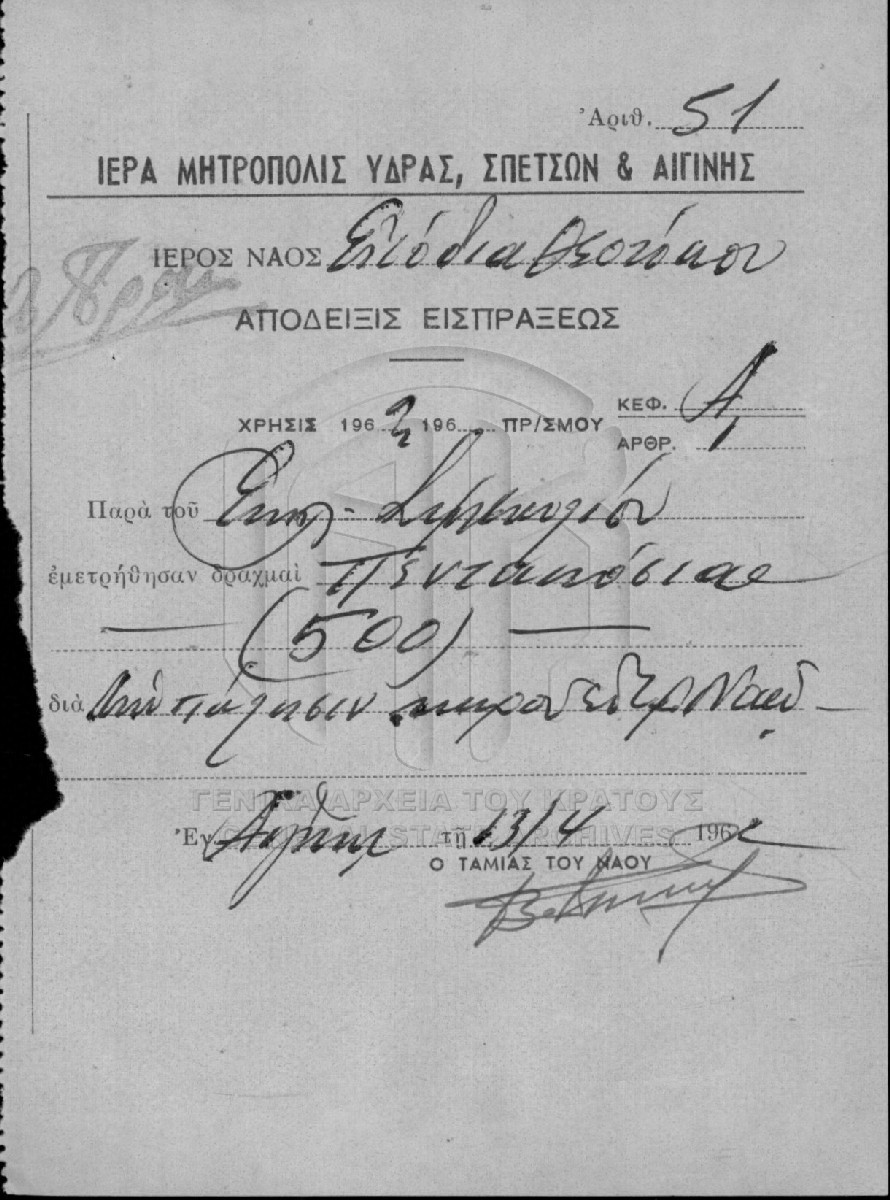 Ἀριθ. 51
ΙΕΡΑ ΜΗΤΡΟΠΟΛΙΣ ΥΔΡΑΣ, ΣΠΕΤΣΩΝ & ΑΙΓΙΝΗΣ
ΙΕΡΟΣ ΝΑΟΣ Εἰσόδια Θεοτόκου
ΑΠΟΔΕΙΞΙΣ ΕΙΣΠΡΑΞΕΩΣ
ΚΕΦ. Α
ΧΡΗΣΙΣ 1962 196 ΠΡ/ΣΜΟΥ
ΑΡΘΡ. 1
Παρὰ τοῦ Ἐκκλ. Συμβουλίου
ἐμετρήθησαν δραχμαὶ Πεντακόσιαι
(500)
διὰ τὴν πώλησιν κηροῦ Ναοῦ
ΓΕΝΙΚΑ ΑΡΧΕΙΑ ΤΟΥ ΚΡΑΤΟΥΣ
GENERAL STATE ARCHIVES
Ἐν τῇ 13/4 1962
Ο ΤΑΜΙΑΣ ΤΟΥ ΝΑΟΥ